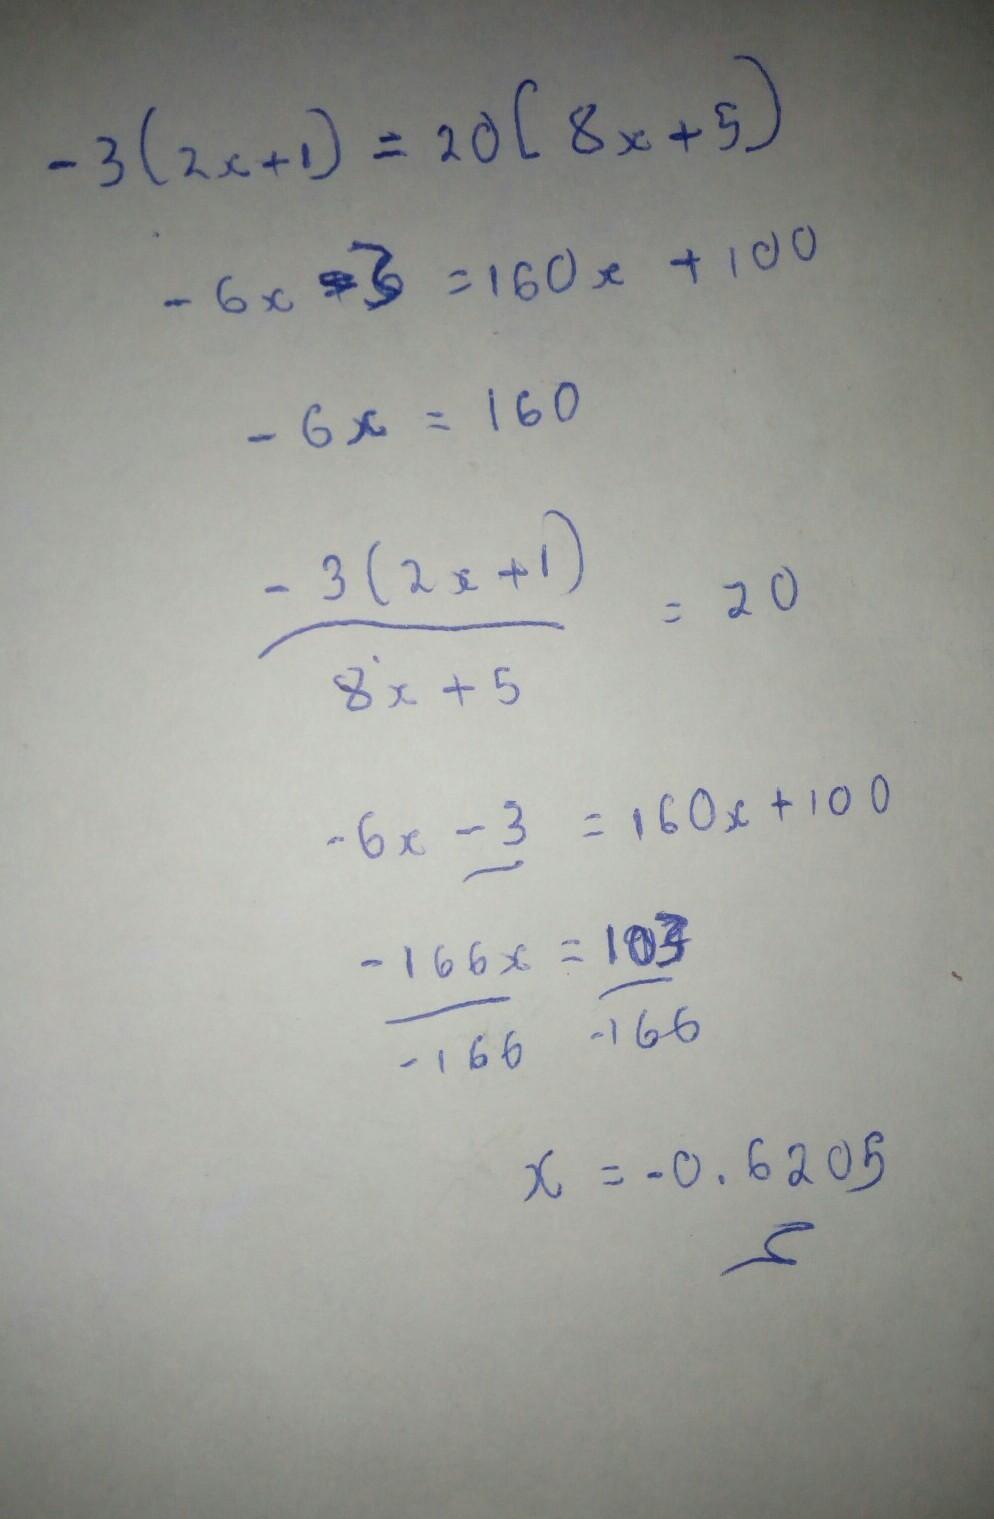 -3(2x+1) = 20(8x+5)
-6x -3 = 160x + 100
-6x = 160
-3(2x+1) = 20
8x+5
-6x -3 = 160x+100
-166x = 103
-166 -166
x = -0.6205